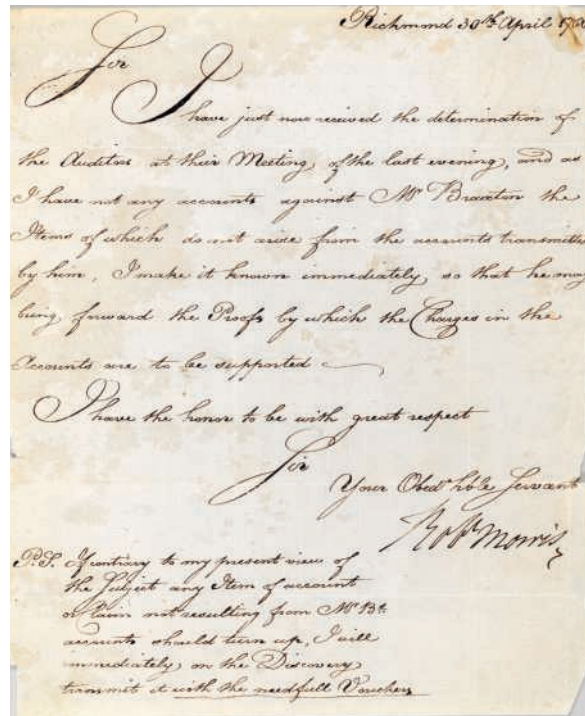 Richmond 30th April
Sir
I have just now received the determination of
the Auditors at their Meeting, of the last evening, and as
I have not any accounts against Mr Braxton the
Items of which do not arise from the accounts transmitte
by him, I make it known immediately so that he may
bring forward the Proofs by which the Charges in the
Accounts are to be supported
I have the honor to be with great respect
Sir
Your Obedt hble Servant
Robt Morris
P.S. If contrary to my present view of
the Subject any Item of account
or Claim not resulting from Mr Bs
accounts should turn up, I will
immediately on the Discovery
transmit it with the needfull Vouchers